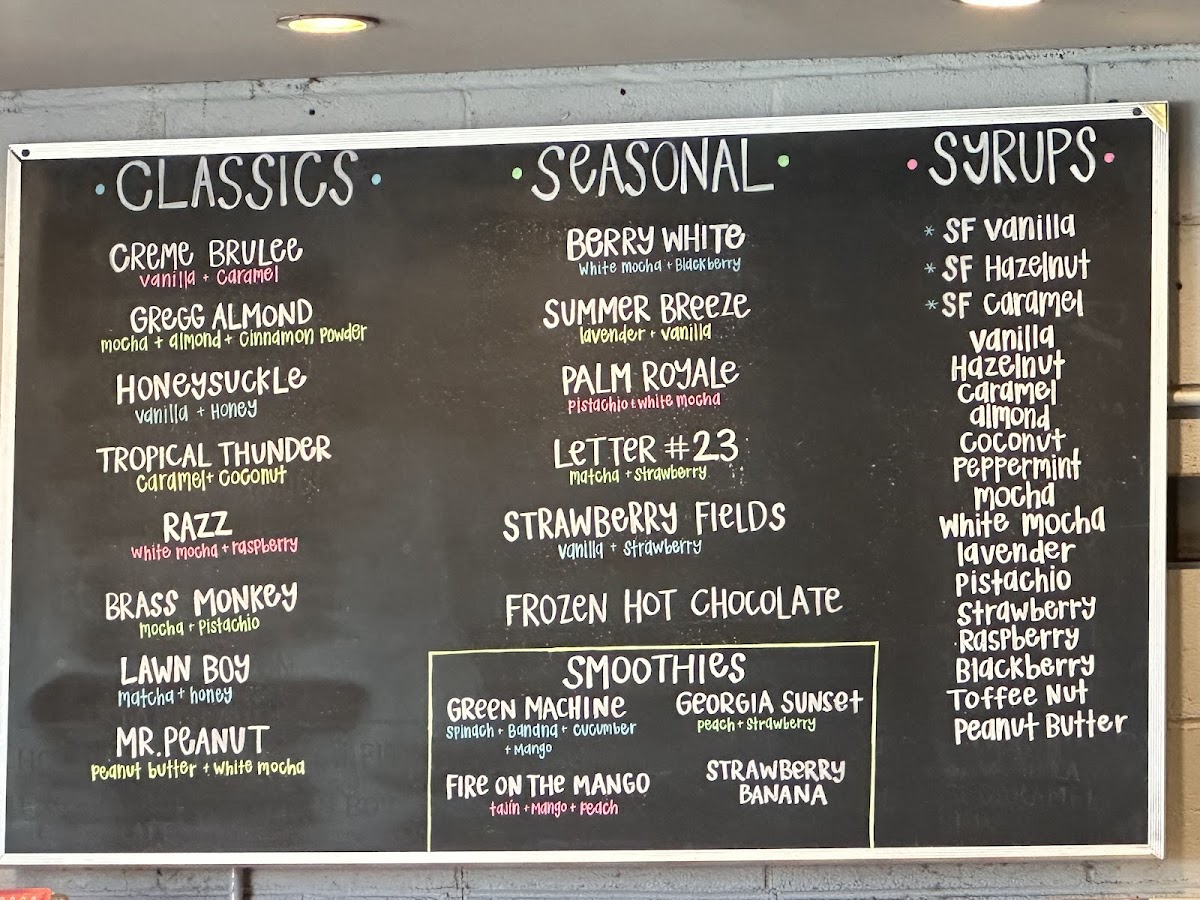 CLASSICS
CREME BRULEE
vanilla + Caramel
GREGG ALMOND
mocha + almond + Cinnamon Powder
HONEYSUCKLE
vanilla + Honey
TROPICAL THUNDER
Caramel + Coconut
RAZZ
White mocha + raspberry
BRASS MONKEY
mocha + Pistachio
LAWN BOY
matcha + honey
MR. PEANUT
Peanut butter + White mocha
SEASONAL
BERRY WHITE
White mocha + Blackberry
SUMMER BREEZE
lavender + vanilla
PALM ROYALE
Pistachio + white mocha
LETTER #23
matcha + strawberry
STRAWBERRY FIELDS
vanilla + strawberry
FROZEN HOT CHOCOLATE
SMOOTHIES
GREEN MACHINE
Spinach + Banana + cucumber
+ Mango
FIRE ON THE MANGO
tajín + Mango + Peach
GEORGIA SUNSET
Peach + Strawberry
STRAWBERRY
BANANA
SYRUPS
* SF Vanilla
* SF Hazelnut
* SF Caramel
Vanilla
Hazelnut
Caramel
almond
Coconut
Peppermint
mocha
White mocha
lavender
Pistachio
Strawberry
Raspberry
Blackberry
Toffee Nut
Peanut Butter